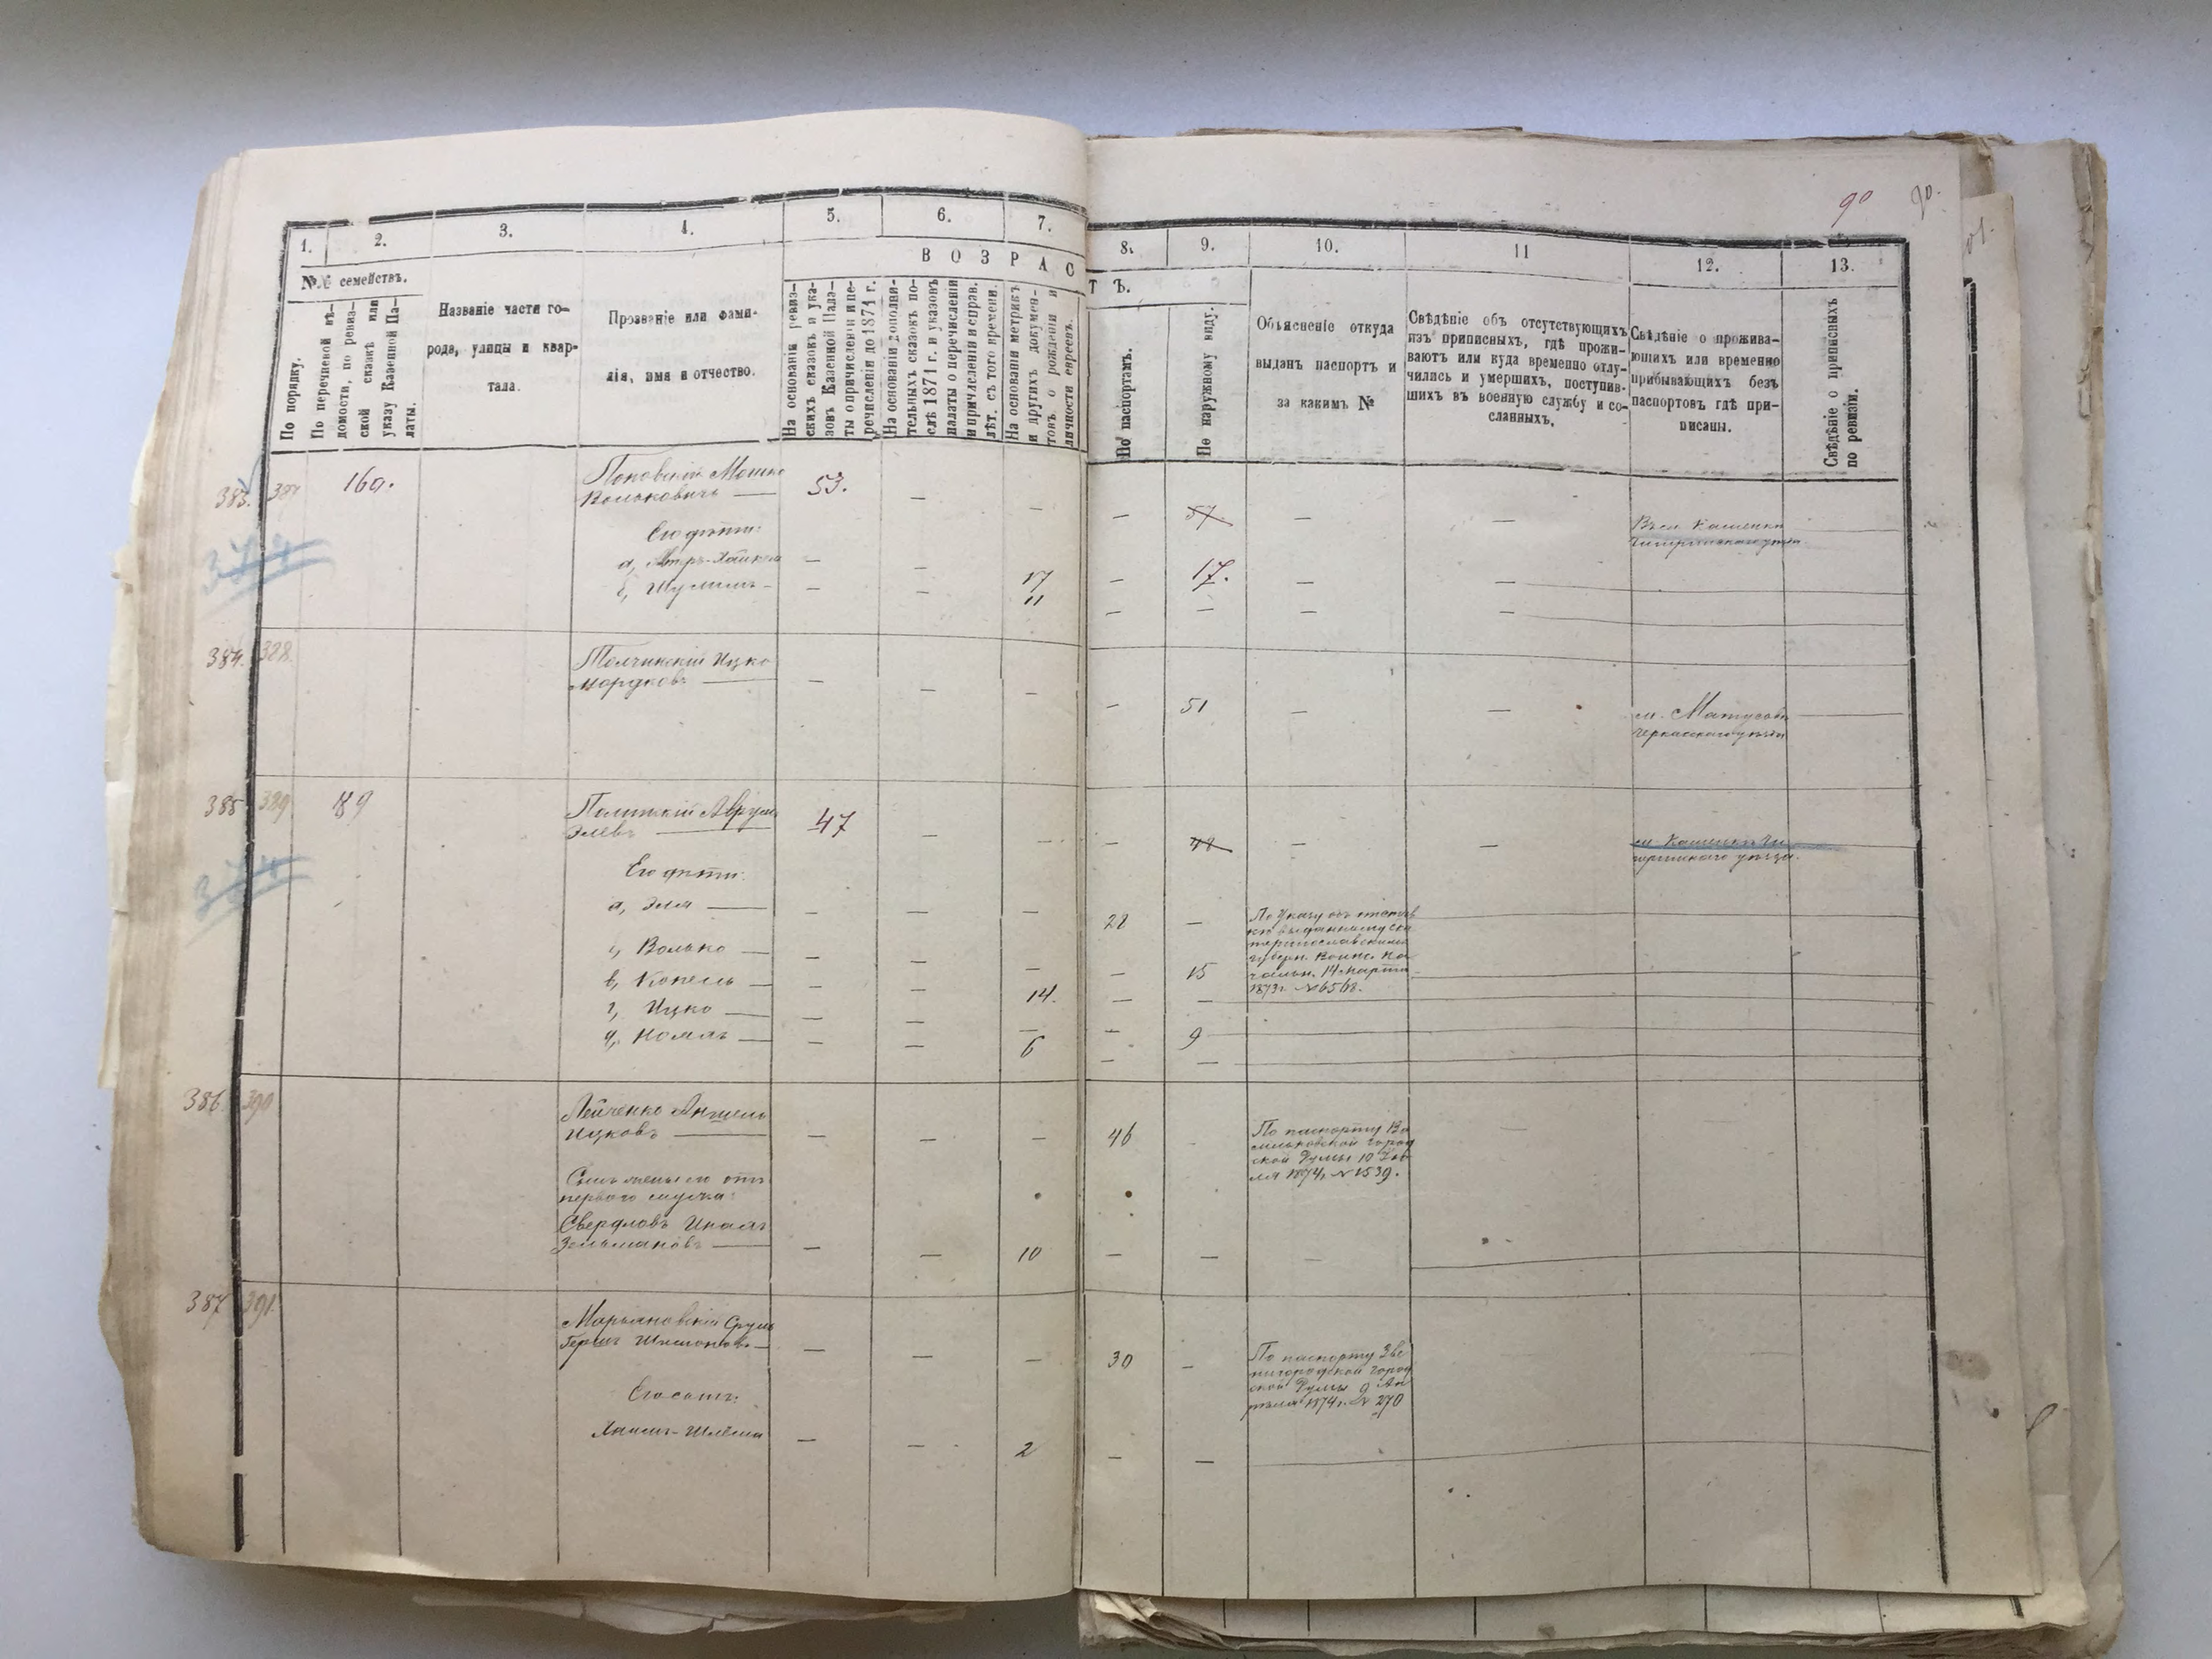 90
90.
1.
2.
3.
4.
5.
6.
7.
8.
9.
10.
11
12.
13.
№№ семействъ.
По порядку.
По перечневой вѣ-
домости, по ревиз-
ской сказкѣ или
указу Казенной Па-
латы.
Названіе части го-
рода, улицы и квар-
тала.
Прозваніе или фами-
лія, имя и отчество.
ВОЗРАС
ТЪ.
На основаніи ревиз-
скихъ сказокъ и ука-
зовъ Казенной Пала-
ты о причисленіи и пе-
речисленіи до 1871 г.
На основаніи дополни-
тельныхъ сказокъ по-
слѣ 1871 г. и указовъ
палаты о перечисленіи
и причисленіи и справ.
лѣт. съ того времени.
На основаніи метрикъ
и другихъ докумен-
товъ о рожденіи и
личности евреевъ.
По паспортамъ.
По наружному виду.
Объясненіе откуда
выданъ паспортъ и
за какимъ №
Свѣдѣніе объ отсутствующихъ
изъ приписныхъ, гдѣ прожи-
ваютъ или куда временно отлу-
чились и умершихъ, поступив-
шихъ въ военную службу и со-
сланныхъ.
Свѣдѣніе о прожива-
ющихъ или временно
прибывающихъ безъ
паспортовъ гдѣ при-
писаны.
Свѣдѣніе о приписныхъ
по ревизіи.
383.
160.
Мошко
Вольковичъ —
53.
—
—
—
57
—
—
Въ м. Каменки
Чигиринскаго уѣзда
Его дѣти:
а,
—
—
17
—
17.
—
—
б, Шулимъ -
—
—
11
—
—
—
—
384. 388.
Толчинскій Ицко
Мордковъ —
—
—
—
—
51
—
—
м. Матусовъ
Черкасскаго уѣзда
385 389
189
Аврумъ
Элевъ —
47
—
—
—
48
—
—
м. Каменки Чи
гиринскаго уѣзда.
Его дѣти:
а, Эля —
—
—
—
28
—
По Указу объ отстав
кѣ выданному Ека
теринославскимъ
губерн. воинс. На
чальн. 14 марта
1873 г. № 6568.
б, Волько —
—
—
—
—
15
в, Копель —
—
—
14.
—
—
г, Ицко —
—
—
—
—
9
д, —
—
—
6
—
—
386. 390
Лейченко Аншель
Ицковъ —
—
—
—
46
-
По паспорту Ва
сильковской город
ской Думы 10 Ію
ля 1874 г. № 1539.
—
Сынъ жены его отъ
перваго мужа:
Свердловъ
Зельмановъ —
—
—
10
—
—
—
387 391.
Марьяновскій Сруль
Гершъ Шимоновъ —
—
—
—
30
-
По паспорту Зве
нигородской город
ской Думы 9 Ап
рѣля 1874 г. № 270
Его сынъ:
Хаимъ-Шлёма
—
—
2
—
—